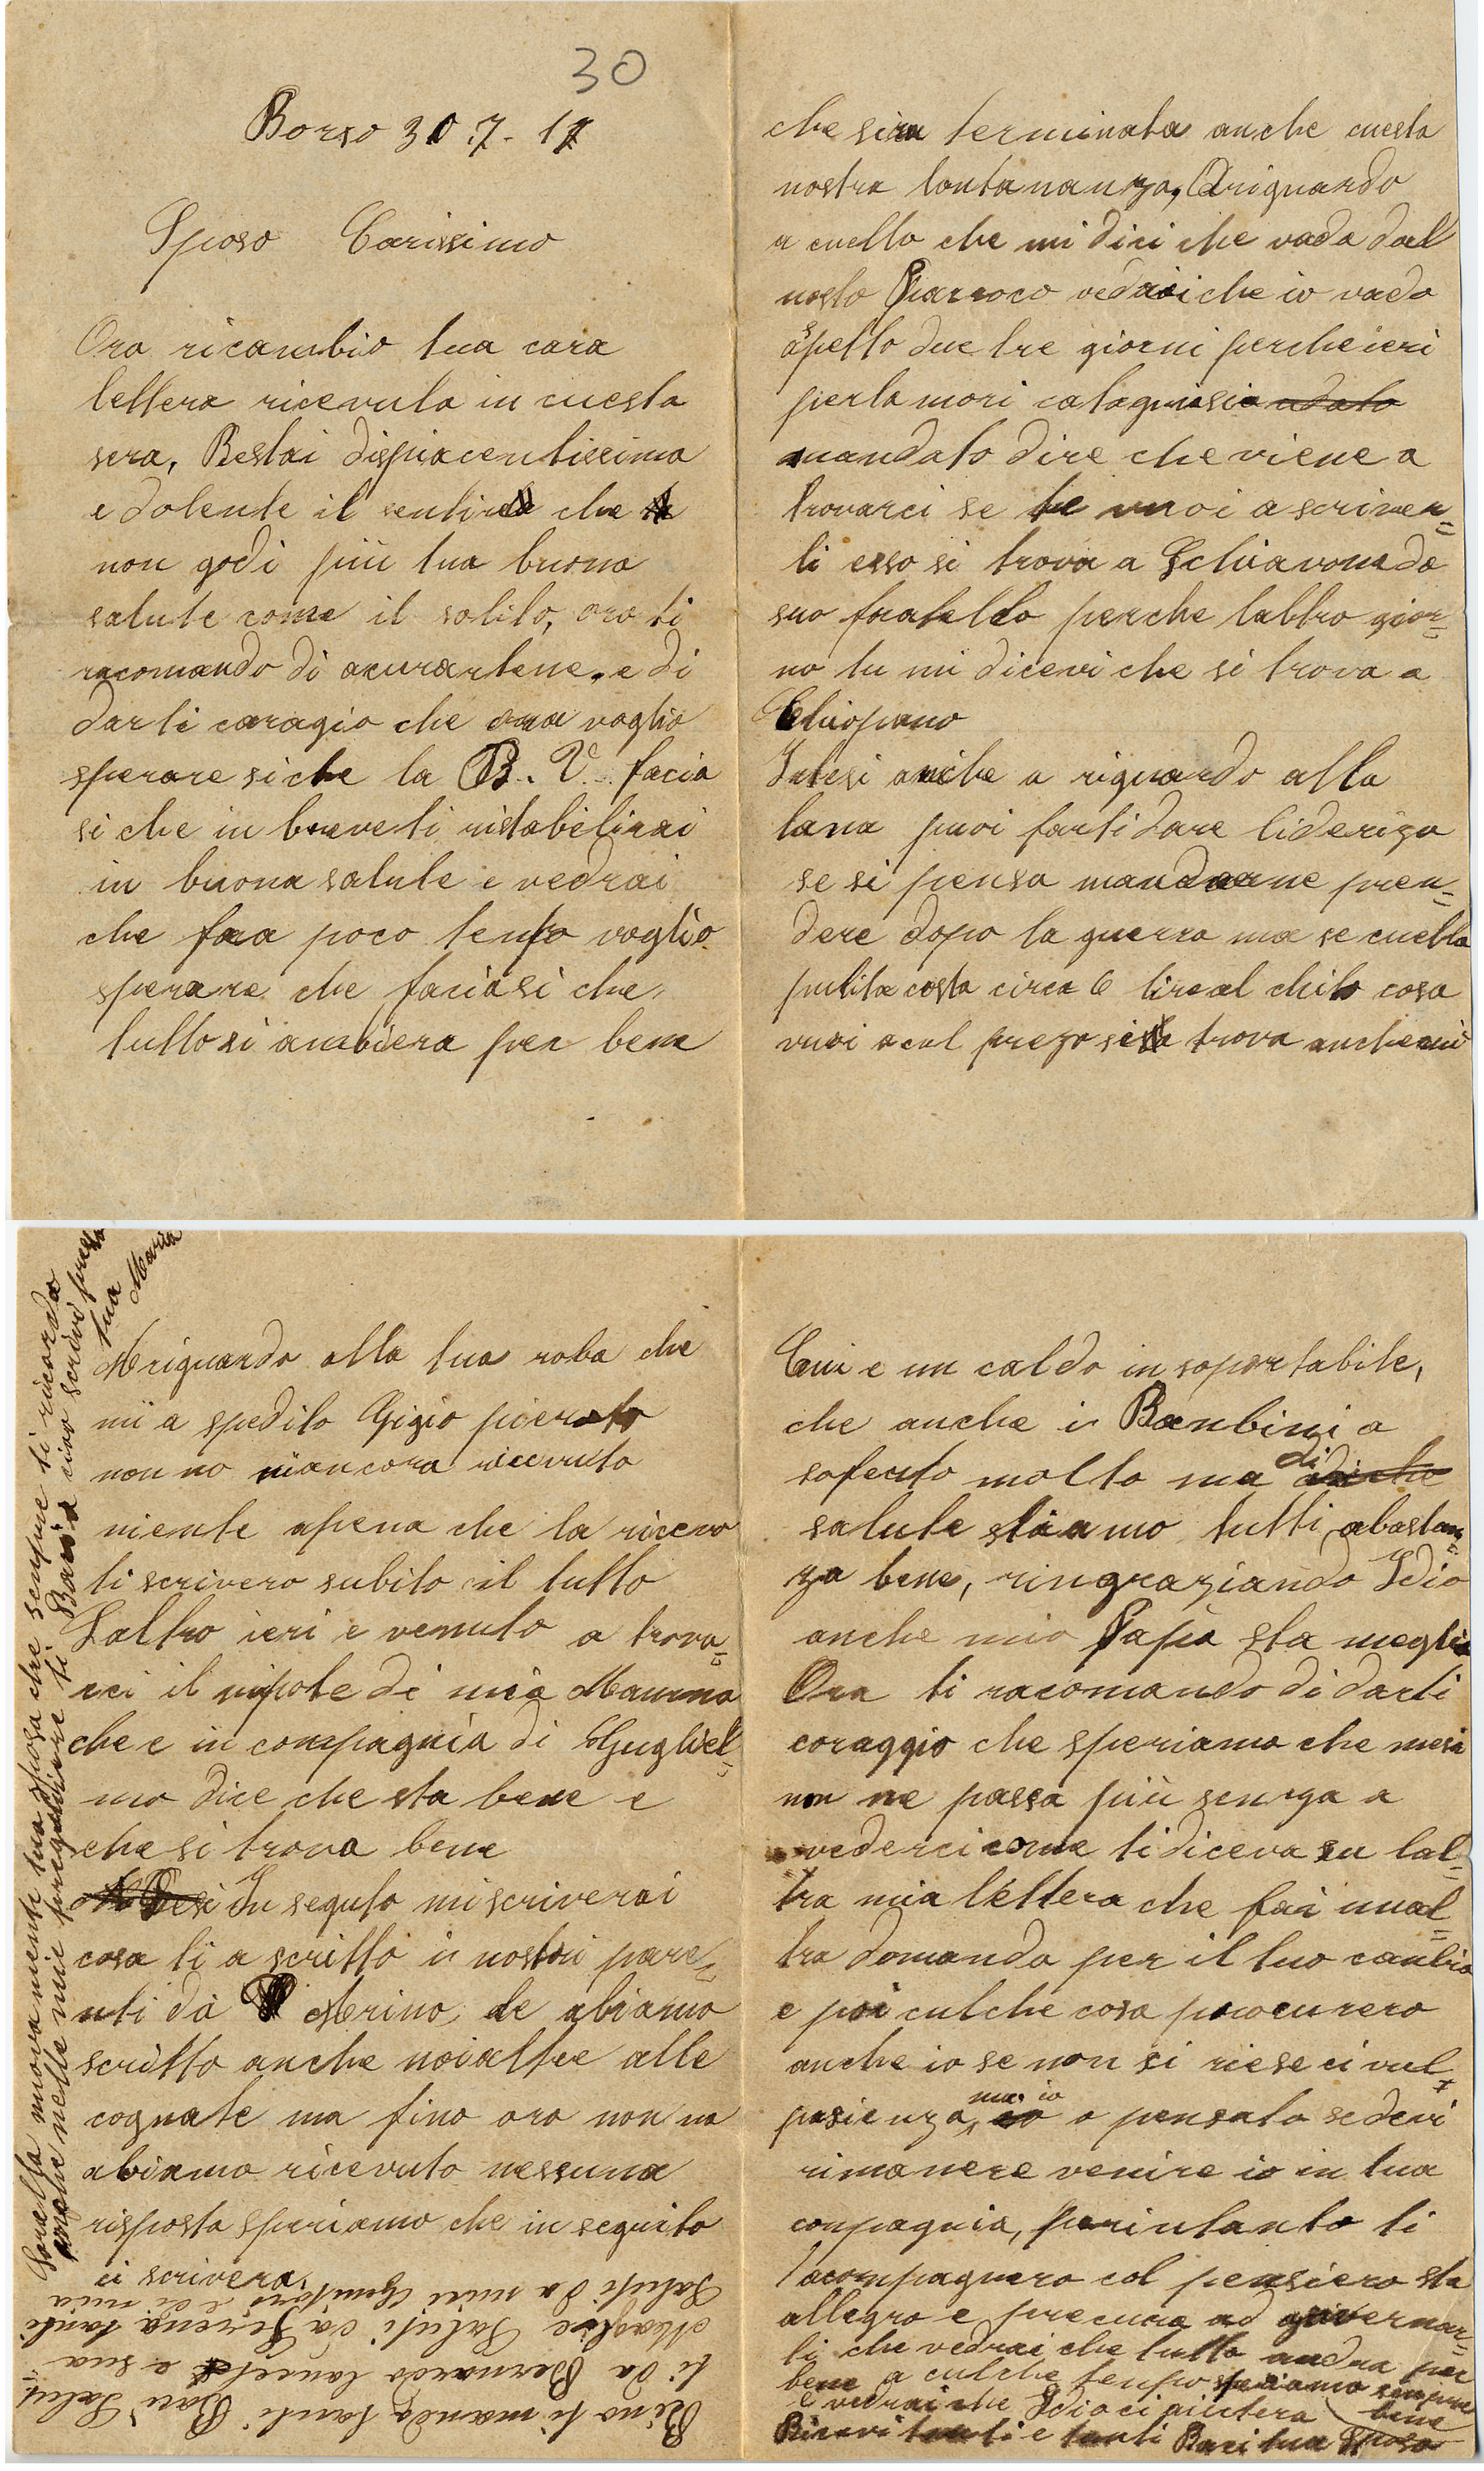 30
Borso 30 7 - 17
Sposo Carissimo
Ora ricambio tua cara
lettera ricevuta in cuesta
sera, Restai dispiacentissima
e dolente il sentire che
non godi più tua buona
salute come il solito, ora ti
racomando di acurartene, e di
darti caragio che ora voglio
sperare siche la B. V. facia
si che in breve ti ristabilirai
in buona salute e vedrai
che fra poco tempo voglio
sperare che faciasi che
tutto si ambiera per bene
che sira terminata anche cuesta
nostra lontananza, Ariguardo
a cuello che mi dici che vada dal
nosto Parroco vedrai che io vado
aspetto due tre giorni perche ieri
perla mori
mandato dire che viene a
trovarci se te vuoi a scriver=
ti esso si trova a Schiavon da
suo fratello perche laltro gior=
no tu mi dicevi che si trova a
Chiopano
Intesi anche a riguardo alla
lana puoi farti dare liderizo
se si pensa mandarne pren=
dere dopo la guerra ma se cuella
pulita costa circa 6 lire al chilo cosa
vuoi a cul prezo si trova anche cui
Ariguardo alla tua roba che
mi a spedito Gigio pierato
non no ancora ricevuto
niente apena che la ricevo
ti scrivero subito il tutto
Laltro ieri e venuto a trova=
rci il nipote di mia Mamma
che e in compagnia di Gugliel=
mo dice che sta bene e
che si trova bene
In seguto mi scriverai
cosa ti a scritto i nostri pare=
nti da Merino, le abiamo
scritto anche noialtre alle
cognate ma fino ora non na
abiamo ricevuto nessuna
risposta speriamo che in seguito
ci scrivera,
Cui e un caldo insoportabile,
che anche i Banbini a
soferto molto ma di
salute stiamo tutti abastan=
za bene, ringraziando Idio
anche mio Papa sta meglio
Ora ti racomando di darti
coraggio che speriamo che mesi
non ne passa più senza a
vederci come ti diceva su lal=
tra mia lettera che fai unal=
tra domanda per il tuo canbio
e poi culche cosa procurero
anche io se non si riese ci vul
pasienza, ma io o pensato se devi
rimanere venire io in tua
conpagnia, perintanto ti
acompagnero col pensiero sta
allegro e precura ad governar=
ti che vedrai che tutto andra per
bene a culche tenpo stiamo senpre bene
e vedrai che Idio ci aiutera
Ricevi tanti e tanti Baci tua Sposa
Rino ti manda tanti Baci Salu=
ti da Bernardo e sua
Moglie Saluti da Gerena tanti
Saluti da miei Genitori e di mia
Sorella nuovamente tua sposa che sempre ti ricorda
anche nelle mie preghiere ti Bacia ciao scrivi presto
tua Maria